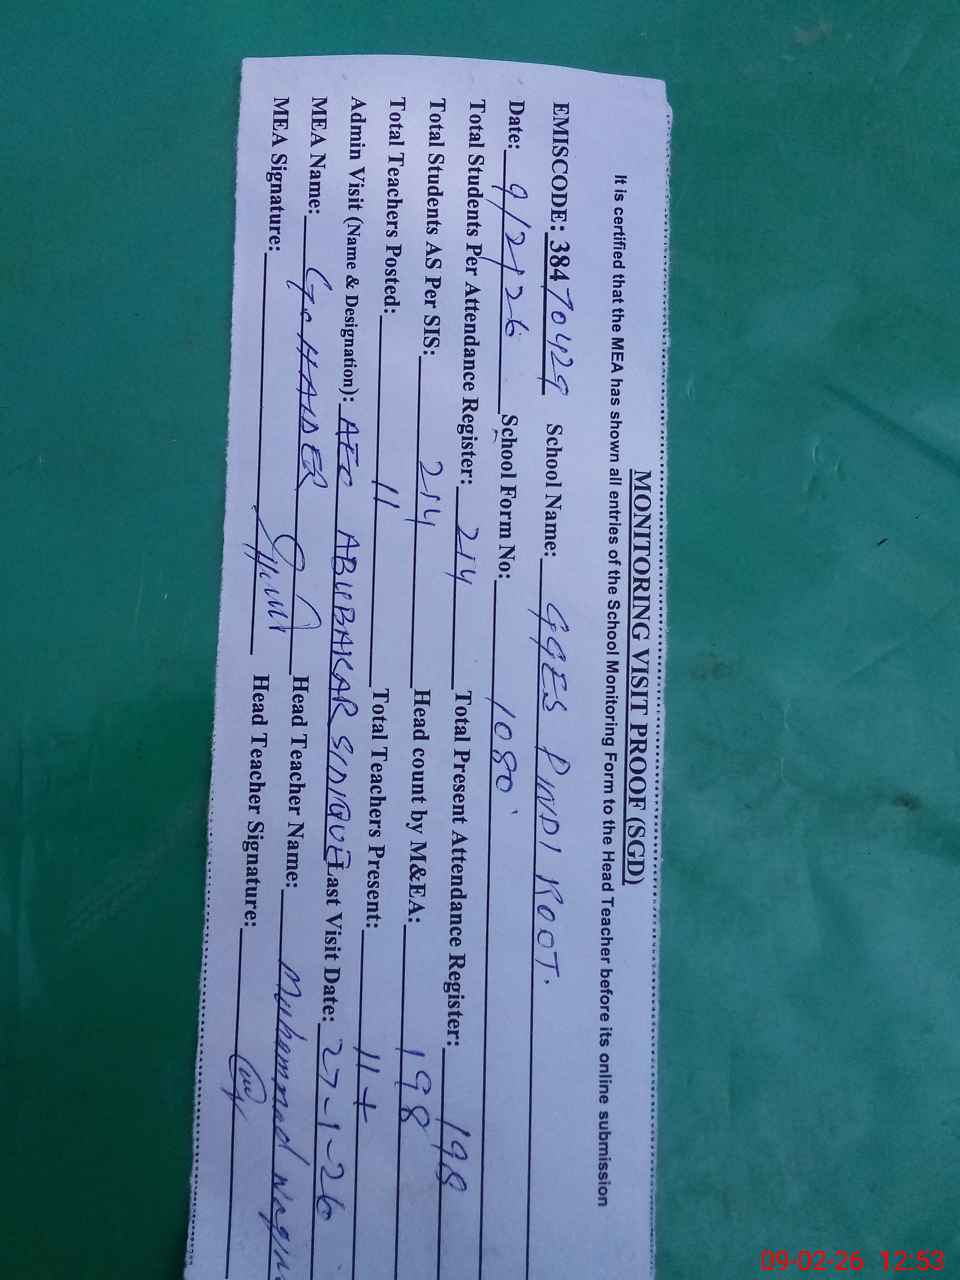 MONITORING VISIT PROOF (SGD)
It is certified that the MEA has shown all entries of the School Monitoring Form to the Head Teacher before its online submission
EMISCODE: 38470429 School Name: GGES PINDI KOOT.
Date: 9/2/26 School Form No: 1080
Total Students Per Attendance Register: 214 Total Present Attendance Register: 198
Total Students AS Per SIS: 214 Head count by M&EA: 198
Total Teachers Posted: 11 Total Teachers Present: 11+
Admin Visit (Name & Designation): AEO ABUBAKAR SIDIQUE Last Visit Date: 27-1-26
MEA Name: HAIDER Head Teacher Name: Muhammad
MEA Signature: Head Teacher Signature:
09-02-26 12:53